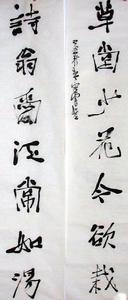 草堂少花今欲栽
詩翁愛酒常如渴